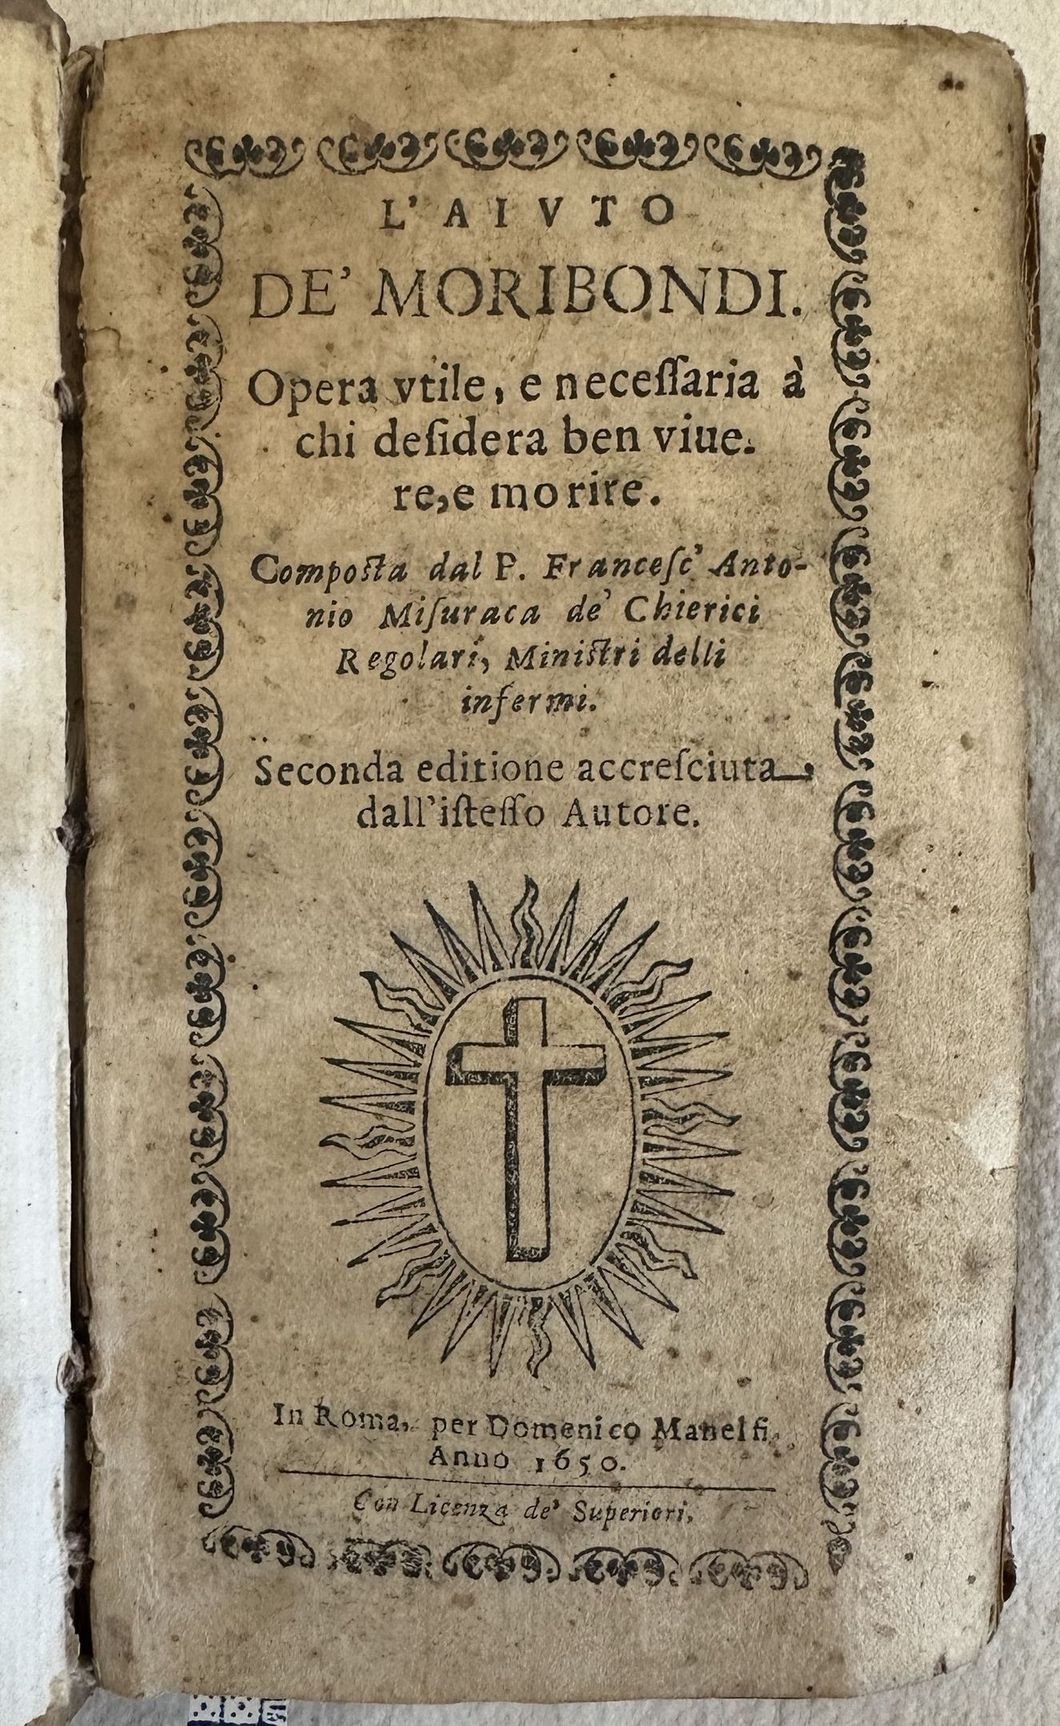 L' A I V T O
DE' MORIBONDI.
Opera vtile, e neceſſaria à
chi deſidera ben viue.
re, e morire.
Compoſta dal P. Franceſc' Anto-
nio Miſuraca de' Chierici
Regolari, Miniſtri delli
infermi.
Seconda editione accreſciuta,
dall'iſteſſo Autore.
In Roma, per Domenico Manelfi,
Anno 1650.
Con Licenza de' Superiori.